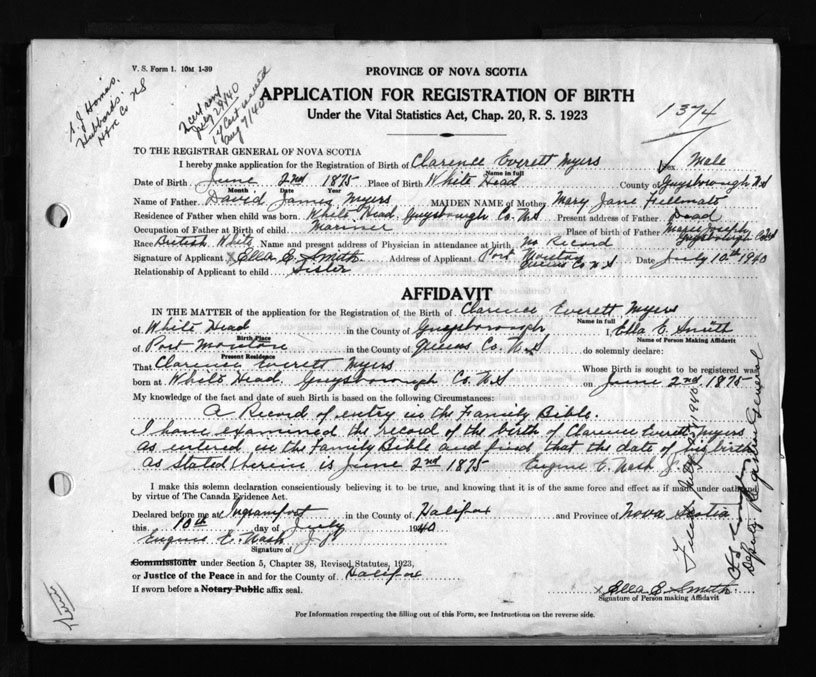 V. S. Form 1. 10M 1-39
Hubbards.
Hx Co NS
July 29/40
Aug 7/40
PROVINCE OF NOVA SCOTIA
APPLICATION FOR REGISTRATION OF BIRTH
Under the Vital Statistics Act, Chap. 20, R. S. 1923
1374
TO THE REGISTRAR GENERAL OF NOVA SCOTIA
I hereby make application for the Registration of Birth of Clarence Everett Myers Sex Male
Name in full
Date of Birth June 2nd 1875 Place of Birth White Head County of Guysborough NS
Month Date Year
Name of Father David James Myers MAIDEN NAME of Mother Mary Jane
Residence of Father when child was born. White Head, Guysborough Co. N.S Present address of Father Dead
Occupation of Father at Birth of child Mariner Place of birth of Father Guysborough Co NS
Race British White Name and present address of Physician in attendance at birth No Record
Signature of Applicant x Ella E. Smith Address of Applicant Port Mouton Queens Co N.S Date July 10th 1940
Relationship of Applicant to child Sister
AFFIDAVIT
IN THE MATTER of the application for the Registration of the Birth of Clarence Everett Myers
Name in full
of White Head in the County of Guysborough I, Ella E. Smith
Birth Place Name of Person Making Affidavit
of Port Mouton in the County of Queens Co. N.S do solemnly declare:
Present Residence
That Clarence Everett Myers Whose Birth is sought to be registered was
born at White Head, Guysborough Co. N.S on June 2nd 1875
My knowledge of the fact and date of such Birth is based on the following Circumstances:
A Record of entry in the Family Bible.
I have examined the record of the birth of Clarence Everett Myers
as entered in the Family Bible and find that the date of his birth
as stated herein is June 2nd 1875 Eugene E. Nash J.P.
I make this solemn declaration conscientiously believing it to be true, and knowing that it is of the same force and effect as if made under oath and
by virtue of The Canada Evidence Act.
Declared before me at Ingramport in the County of Halifax and Province of Nova Scotia
this 10th day of July 1940
Eugene E. Nash J.P.
Signature of
Commissioner under Section 5, Chapter 38, Revised Statutes, 1923,
or Justice of the Peace in and for the County of Halifax
If sworn before a Notary Public affix seal.
x Ella E. Smith
Signature of Person making Affidavit
For Information respecting the filling out of this Form, see Instructions on the reverse side.
Filed July 25th 1940
Deputy Registrar General